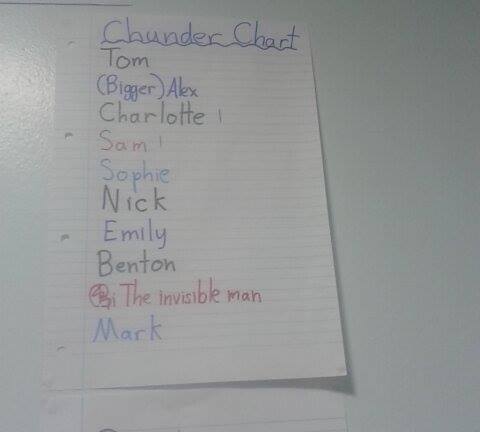 Chunder Chart
Tom
(Bigger) Alex
Charlotte |
Sam |
Sophie
Nick
Emily
Benton
The invisible man
Mark